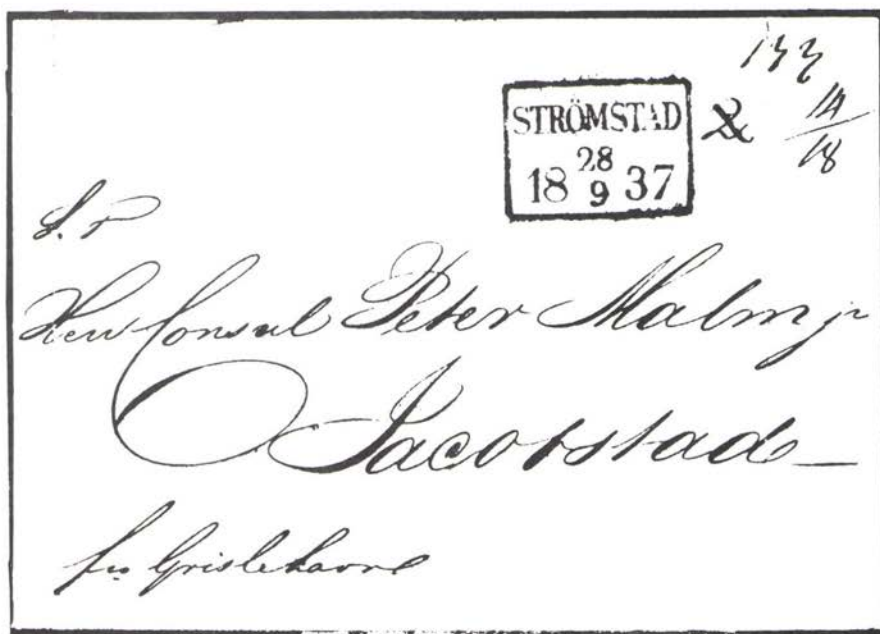 STRÖMSTAD
28
18 9 37
14
18
S. P
Herr Consul Peter Malm jr
Jacobstad
Grislehavn